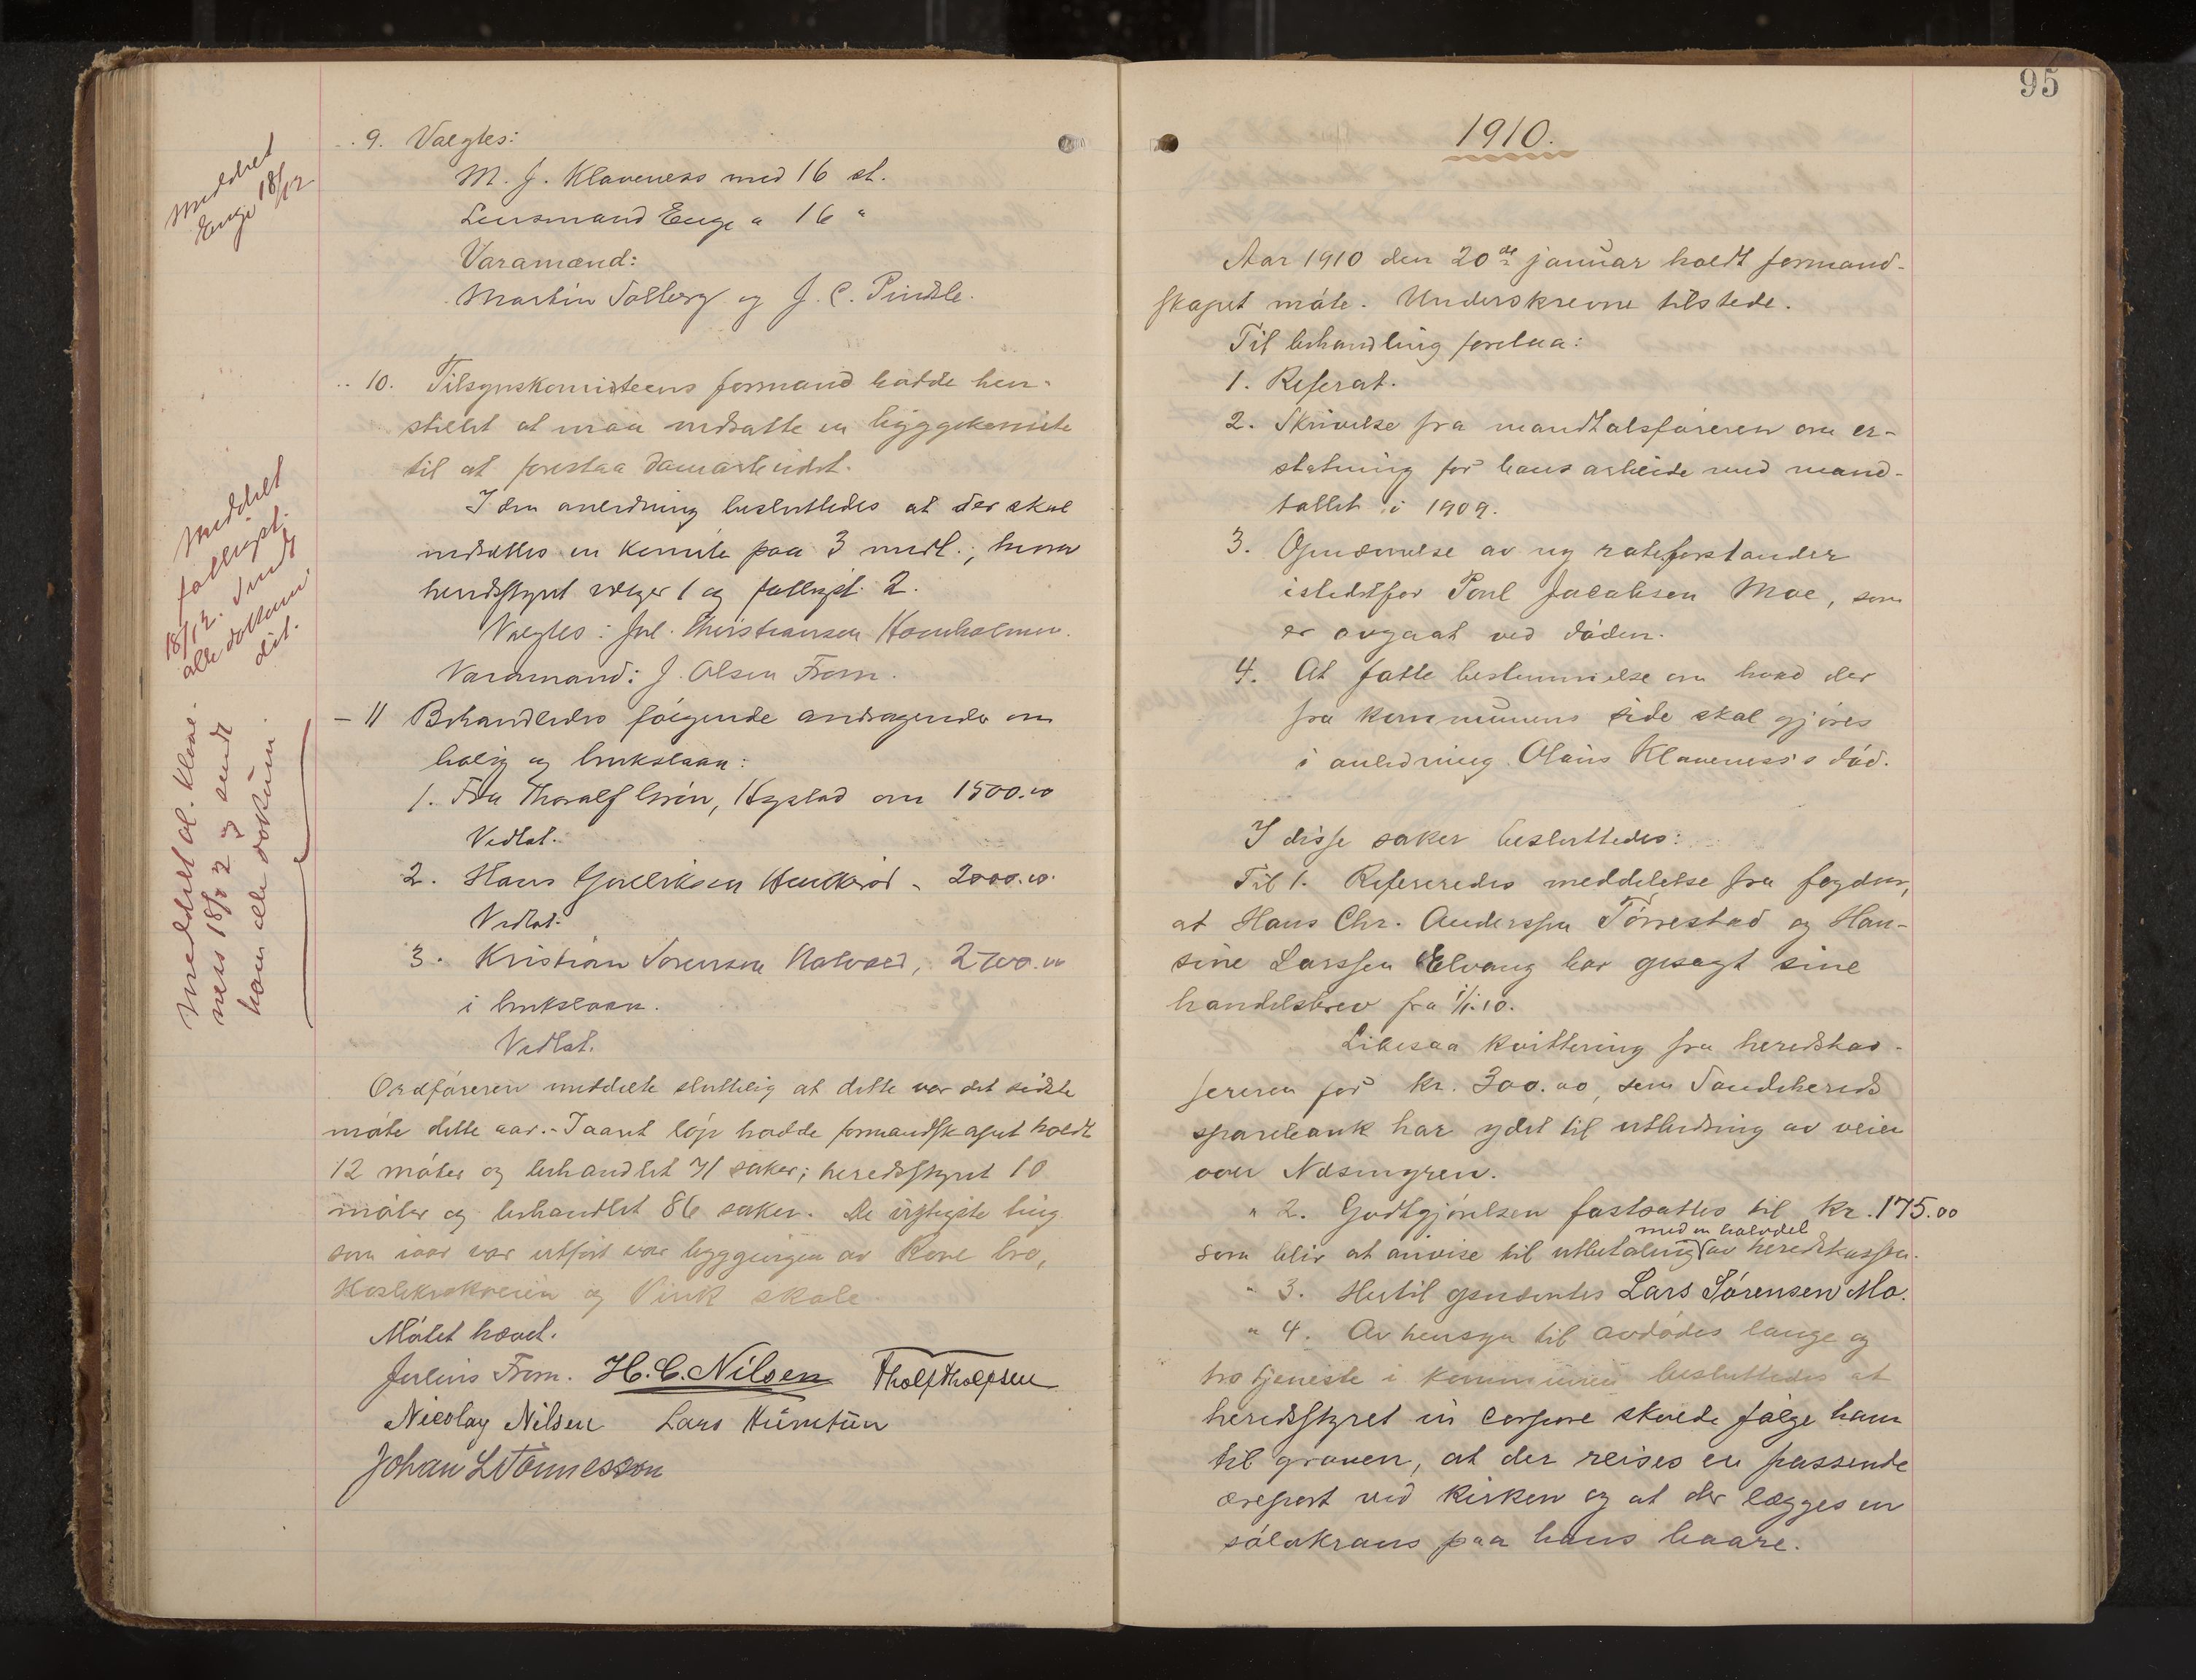 9. Valgtes:
M. J. Klaveness med 16 st.
Lensmand Enge " 16 "
Varamænd:
Martin Solberg og J. C. Pindsle.
10. Tilsynskomiteens formand hadde hen-
stillet at maa nedsætte en byggekomite
til at forestaa damarbeidet.
I den anledning besluttedes at der skal
nedsættes en komite paa 3 medl., hvorav
herredsstyret vælger 1 og fattigst. 2.
Valgtes: Jul. Christiansen Hornholmen.
Varamand: J. Olsen From.
11 Behandledes følgende andragender om
bolig og brukslaan:
1. Fra Thoralf Grøn, Hystad om 1500.00
Vedtat.
2. Hans Gulliksen " 2000.00.
Vedtat.
3. Kristian Sørensen 2700.00
i brukslaan.
Vedtat.
Ordføreren meddelte sluttelig at dette var det sidste
møte dette aar. - I aaret løp hadde formandskapet holdt
12 møter og behandlet 71 saker; heredsstyret 10
møter og behandlet 86 saker. De vigtigste ting
som iaar var utført var byggeingen av bro,
og skole.
Møtet hævet.
Julius From. H. C. Nilsen Tholf Tholfsen
Nicolay Nilsen Lars Hùmtùn
Johan L Tønnesson
Meddelt
Enge 18/12
Meddelt
fattigst.
18/12. Sendt
alle dokum.
dit.
Meddelt al. Klave-
ness 18/ og sendt
ham alle dokùm.
95
1910.
Aar 1910 den 20de januar holdt formand-
skapet møte. Underskrevne tilstede.
Til behandling forelaa:
1. Referat.
2. Skrivelse fra mandtalsføreren om er-
statning for hans arbeide med mand-
tallet i 1909.
3. Opnævnelse av ny rodeforstander
istedetfor Poul Jacobsen Moe, som
er avgaat ved døden.
4. At fatte bestemmelse om hvad der
fra kommunens side skal gjøres
i anledning Olaus Klaveness's død.
I disse saker besluttedes:
Til 1. Refereredes meddelelse fra fogden,
at Hans Chr. Anderssen Tørrestad og Han-
sine Larssen Elvang har opsagt sine
handelsbrev fra 1/1.10.
Likesaa kvittering fra heredskas-
sereren for kr. 300.00, som Sandehereds
sparebank har ydet til utbedring av veien
over Næsmyren.
" 2. Godtgjørelsen fastsattes til kr. 175.00
med en halvdel
som blir at anvise til utbetaling av heredskassen.
" 3. Hertil opnævntes Lars Sørensen Mo.
" 4. Av hensyn til avdødes lange og
tro tjeneste i kommunen besluttedes at
heredsstyret in corpore skulde følge ham
til graven, at der reises en passende
æresport ved kirken og at der lægges en
sølvkrans paa hans baare.